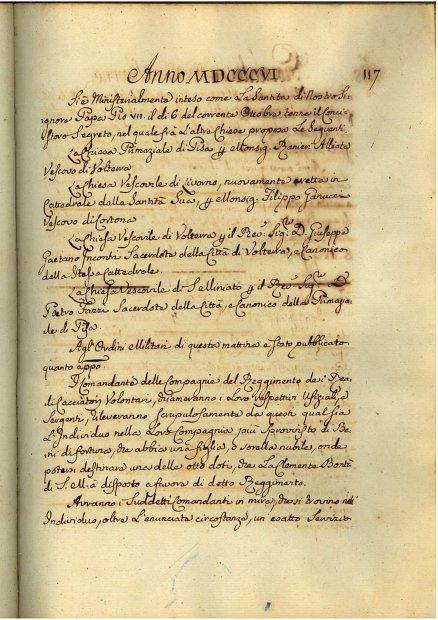 Anno MDCCCVI
117
Si è Ministerialmente inteso come La Santità di Nostro Si-
gnore Papa Pio VII. il dì 6 del corrente Ottobre tenne il Conci-
storo Segreto, nel quale frà L'altre Chiese propose Le Seguenti
La Chiesa Primaziale di Pisa y Monsig. Ranieri Alliata
Vescovo di Volterra
La Chiesa Vescovile di Livorno, nuovamente eretta in
Cattedrale dalla Santità Sua, y Monsig. Filippo Ganucci
Vescovo di Cortona
La Chiesa Vescovile di Volterra y il Rev. Sig. D. Giuseppe
Gaetano Incontri Sacerdote della Città di Volterra, e Canonico
della stessa Cattedrale.
La Chiesa Vescovile di y il Rev. Sig. D.
Pietro Fazzi Sacerdote della Città, e Canonico della Primazia-
le di Pisa.
Agl'Ordini Militari di questa mattina è stato pubblicato
quanto app.
I Comandanti delle Compagnie del Reggimento de i Rea-
li Cacciatori Volontari, chiameranno i Loro respettivi Ufiziali, e
Sergenti, e rileveranno scrupolosamente da questi qual sia
L'Individuo nella Loro Compagnia più sprovvisto di Be-
ni di fortuna, che abbia una figlia, o sorella nubile, onde
potersi destinare una delle otto doti, che La Clemente Bontà
di S. M. à disposto a favore di detto Reggimento.
Avranno i Suddetti Comandanti in mira, che si trovino nell'
Individuo, oltre L'enunciate circostanze, un esatto Servizio